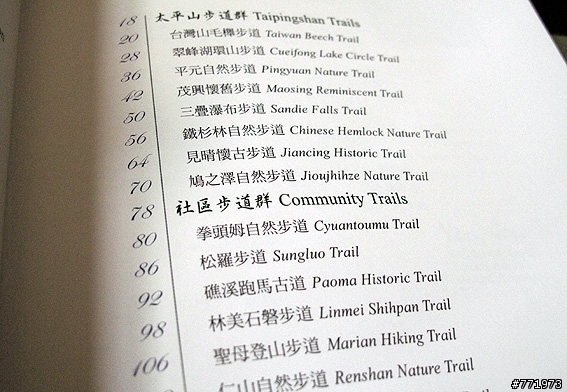 18 太平山步道群 Taipingshan Trails
20 台灣山毛櫸步道 Taiwan Beech Trail
28 翠峰湖環山步道 Cueifong Lake Circle Trail
36 平元自然步道 Pingyuan Nature Trail
42 茂興懷舊步道 Maosing Reminiscent Trail
50 三疊瀑布步道 Sandie Falls Trail
56 鐵杉林自然步道 Chinese Hemlock Nature Trail
64 見晴懷古步道 Jiancing Historic Trail
70 鳩之澤自然步道 Jioujhihze Nature Trail
78 社區步道群 Community Trails
80 拳頭姆自然步道 Cyuantoumu Trail
86 松羅步道 Sungluo Trail
92 礁溪跑馬古道 Paoma Historic Trail
98 林美石磐步道 Linmei Shihpan Trail
106 聖母登山步道 Marian Hiking Trail
仁山自然步道 Renshan Nature Trail
#771973